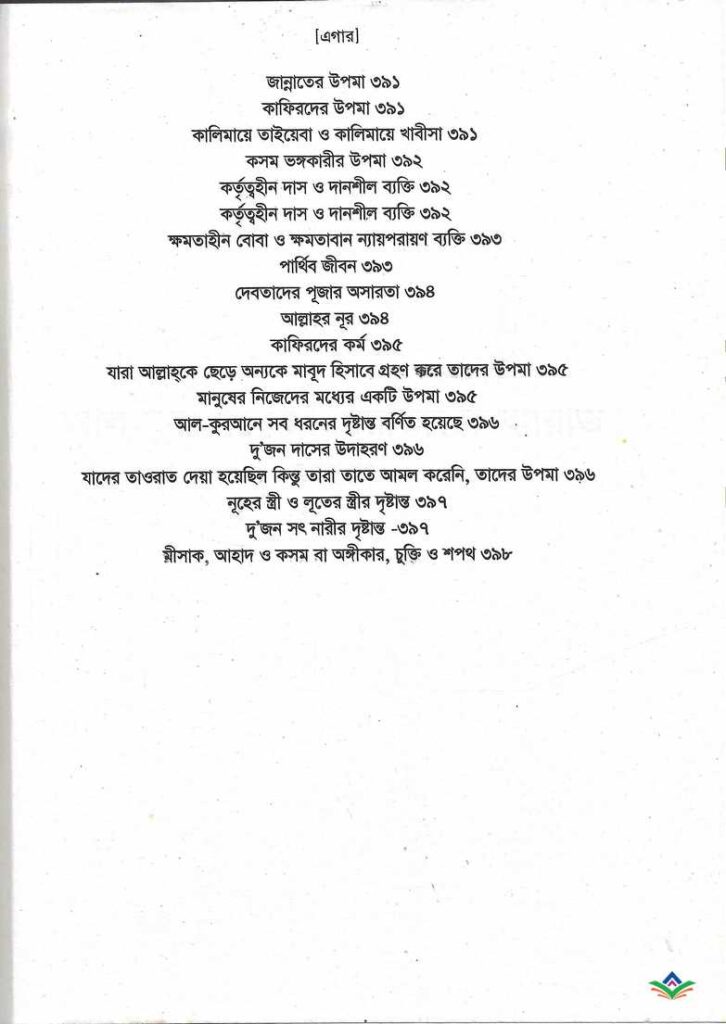 [এগার]
জান্নাতের উপমা ৩৯১
কাফিরদের উপমা ৩৯১
কালিমায়ে তাইয়েবা ও কালিমায়ে খাবীসা ৩৯১
কসম ভঙ্গকারীর উপমা ৩৯২
কর্তৃত্বহীন দাস ও দানশীল ব্যক্তি ৩৯২
কর্তৃত্বহীন দাস ও দানশীল ব্যক্তি ৩৯২
ক্ষমতাহীন বোবা ও ক্ষমতাবান ন্যায়পরায়ণ ব্যক্তি ৩৯৩
পার্থিব জীবন ৩৯৩
দেবতাদের পূজার অসারতা ৩৯৪
আল্লাহর নূর ৩৯৪
কাফিরদের কর্ম ৩৯৫
যারা আল্লাহ্‌কে ছেড়ে অন্যকে মাবূদ হিসাবে গ্রহণ করে তাদের উপমা ৩৯৫
মানুষের নিজেদের মধ্যের একটি উপমা ৩৯৫
আল-কুরআনে সব ধরনের দৃষ্টান্ত বর্ণিত হয়েছে ৩৯৬
দু'জন দাসের উদাহরণ ৩৯৬
যাদের তাওরাত দেয়া হয়েছিল কিন্তু তারা তাতে আমল করেনি, তাদের উপমা ৩৯৬
নূহের স্ত্রী ও লূতের স্ত্রীর দৃষ্টান্ত ৩৯৭
দু'জন সৎ নারীর দৃষ্টান্ত -৩৯৭
মীসাক, আহাদ ও কসম বা অঙ্গীকার, চুক্তি ও শপথ ৩৯৮